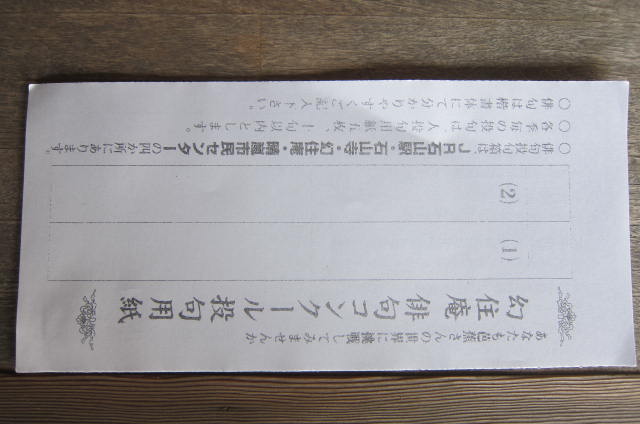 あなたも芭蕉さんの世界に挑戦してみませんか
幻住庵 俳句コンクール投句用紙
(1)
(2)
○ 俳句投句箱は、JR石山駅・石山寺・幻住庵・晴嵐市民センターの四か所にあります。
○ 各季毎の投句は、一人投句用紙五枚、十句以内とします。
○ 俳句は楷書体にて分かりやすくご記入下さい。